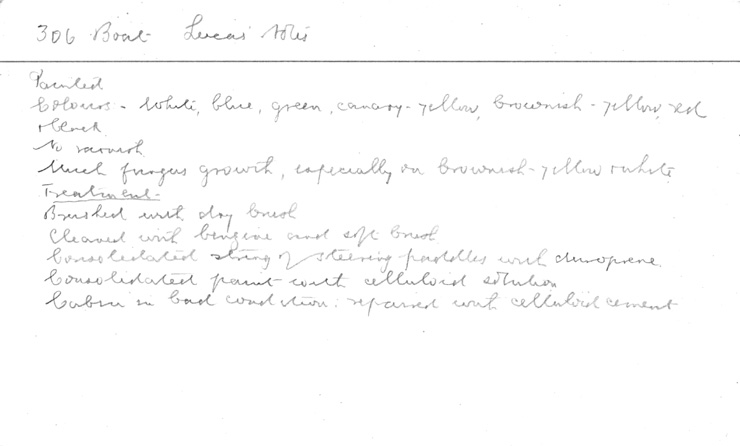 306 Boat Lucas' Notes
Painted
Colours - White, blue, green, canary-yellow, brownish-yellow, red
+ black
No varnish
Much fungus growth, especially on brownish-yellow + white
Treatment-
Brushed with dry brush
Cleaned with benzine and soft brush
Consolidated string of steering paddles with duroprene
Consolidated paint with celluloid solution
Cabin in bad condition: repaired with celluloid cement